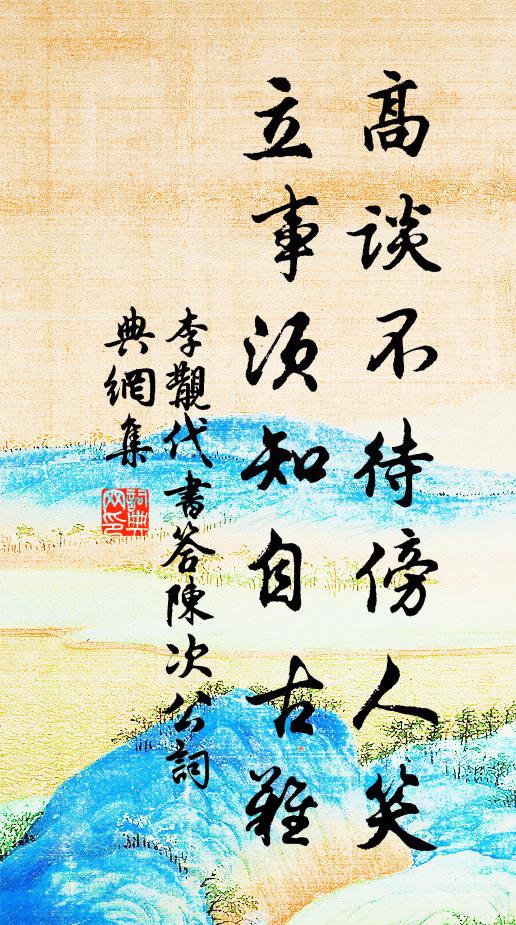 高談不待傍人笑
立事須知自古難
李覯代書答陳次公詞
典網集
詞典網印